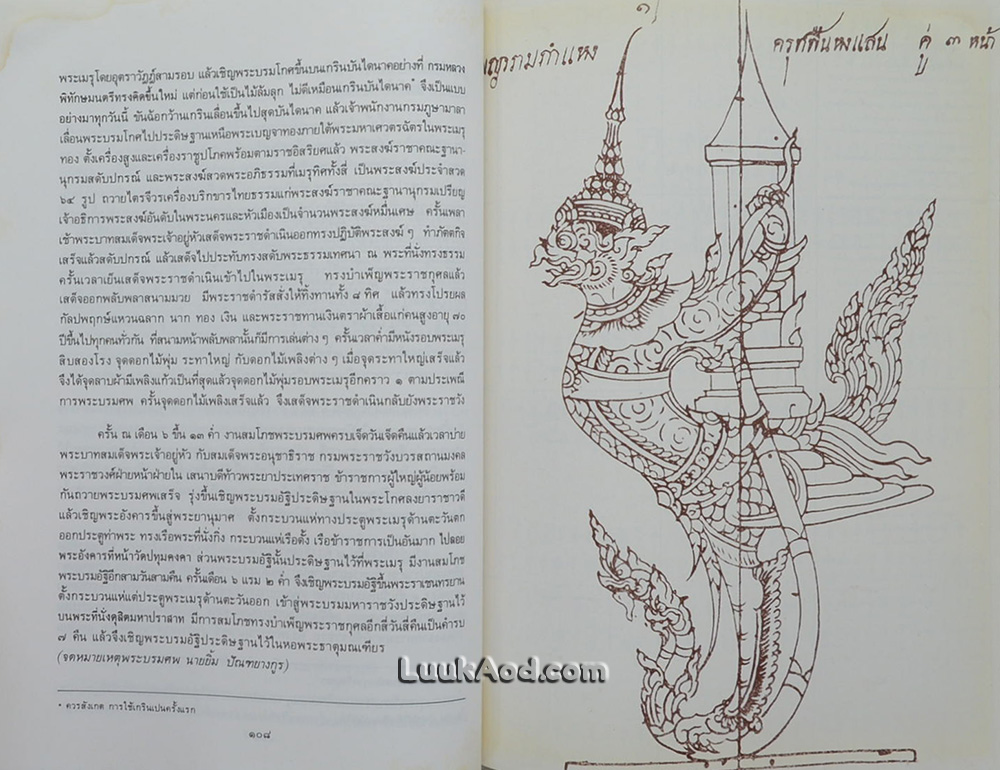 พระเมรุโดยอุตราวัฏฏ์สามรอบ แล้วเชิญพระบรมโกศขึ้นบนเกรินบันไดนาคอย่างที่ กรมหลวง
พิทักษมนตรีทรงคิดขึ้นใหม่ แต่ก่อนใช้เป็นไม้ล้มลุก ไม่ดีเหมือนเกรินบันไดนาค* จึงเป็นแบบ
อย่างมาทุกวันนี้ ขันฉ้อกว้านเกรินเลื่อนขึ้นไปสุดบันไดนาค แล้วเจ้าพนักงานกรมภูษามาลา
เลื่อนพระบรมโกศไปประดิษฐานเหนือพระเบญจาทองภายใต้พระมหาเศวตรฉัตรในพระเมรุ
ทอง ตั้งเครื่องสูงและเครื่องราชูปโภคพร้อมตามราชอิสริยศแล้ว พระสงฆ์ราชาคณะฐานา-
นุกรมสดับปกรณ์ และพระสงฆ์สวดพระอภิธรรมที่เมรุทิศทั้งสี่ เป็นพระสงฆ์ประจำสวด
๖๔ รูป ถวายไตรจีวรเครื่องบริกขารไทยธรรมแก่พระสงฆ์ราชาคณะฐานานุกรมเปรียญ
เจ้าอธิการพระสงฆ์อันดับในพระนครและหัวเมืองเป็นจำนวนพระสงฆ์หมื่นเศษ ครั้นเพลา
เช้าพระบาทสมเด็จพระเจ้าอยู่หัวเสด็จพระราชดำเนินออกทรงปฏิบัติพระสงฆ์ ๆ ทำภัตตกิจ
เสร็จแล้วสดับปกรณ์ แล้วเสด็จไปประทับทรงสดับพระธรรมเทศนา ณ พระที่นั่งทรงธรรม
ครั้นเวลาเย็นเสด็จพระราชดำเนินเข้าไปในพระเมรุ ทรงบำเพ็ญพระราชกุศลแล้ว
เสด็จออกพลับพลาสนามมวย มีพระราชดำรัสสั่งให้ทิ้งทานทั้ง ๘ ทิศ แล้วทรงโปรยผล
กัลปพฤกษ์แหวนฉลาก นาก ทอง เงิน และพระราชทานเงินตราผ้าเสื้อแก่คนสูงอายุ ๗๐
ปีขึ้นไปทุกคนทั่วกัน ที่สนามหน้าพลับพลานั้นก็มีการเล่นต่าง ๆ ครั้นเวลาค่ำมีหนังรอบพระเมรุ
สิบสองโรง จุดดอกไม้พุ่ม ระทาใหญ่ กับดอกไม้เพลิงต่าง ๆ เมื่อจุดระทาใหญ่เสร็จแล้ว
จึงได้จุดลาบผ้ามีเพลิงแก้วเป็นที่สุดแล้วจุดดอกไม้พุ่มรอบพระเมรุอีกคราว ๑ ตามประเพณี
การพระบรมศพ ครั้นจุดดอกไม้เพลิงเสร็จแล้ว จึงเสด็จพระราชดำเนินกลับยังพระราชวัง
ครั้น ณ เดือน ๖ ขึ้น ๑๓ ค่ำ งานสมโภชพระบรมศพครบเจ็ดวันเจ็ดคืนแล้วเวลาบ่าย
พระบาทสมเด็จพระเจ้าอยู่หัว กับสมเด็จพระอนุชาธิราช กรมพระราชวังบวรสถานมงคล
พระราชวงศ์ฝ่ายหน้าฝ่ายใน เสนาบดีท้าวพระยาประเทศราช ข้าราชการผู้ใหญ่ผู้น้อยพร้อม
กันถวายพระบรมศพเสร็จ รุ่งขึ้นเชิญพระบรมอัฐิประดิษฐานในพระโกศลงยาราชาวดี
แล้วเชิญพระอังคารขึ้นสู่พระยานุมาศ ตั้งกระบวนแห่ทางประตูพระเมรุด้านตะวันตก
ออกประตูท่าพระ ทรงเรือพระที่นั่งกิ่ง กระบวนแห่เรือดั้ง เรือข้าราชการเป็นอันมาก ไปลอย
พระอังคารที่หน้าวัดปทุมคงคา ส่วนพระบรมอัฐินั้นประดิษฐานไว้ที่พระเมรุ มีงานสมโภช
พระบรมอัฐิอีกสามวันสามคืน ครั้นเดือน ๖ แรม ๒ ค่ำ จึงเชิญพระบรมอัฐิขึ้นพระราเชนทรยาน
ตั้งกระบวนแห่แต่ประตูพระเมรุด้านตะวันออก เข้าสู่พระบรมมหาราชวังประดิษฐานไว้
บนพระที่นั่งดุสิตมหาปราสาท มีการสมโภชทรงบำเพ็ญพระราชกุศลอีกสี่วันสี่คืนเป็นคำรบ
๗ คืน แล้วจึงเชิญพระบรมอัฐิประดิษฐานไว้ในหอพระธาตุมณเฑียร
(จดหมายเหตุพระบรมศพ นายยิ้ม ปัณฑยางกูร)
* ควรสังเกต การใช้เกรินเปนครั้งแรก
๑๐๘
๑
ครุฑพื้นหงแสน คู่ ๓ หน้า
LuukAod.com